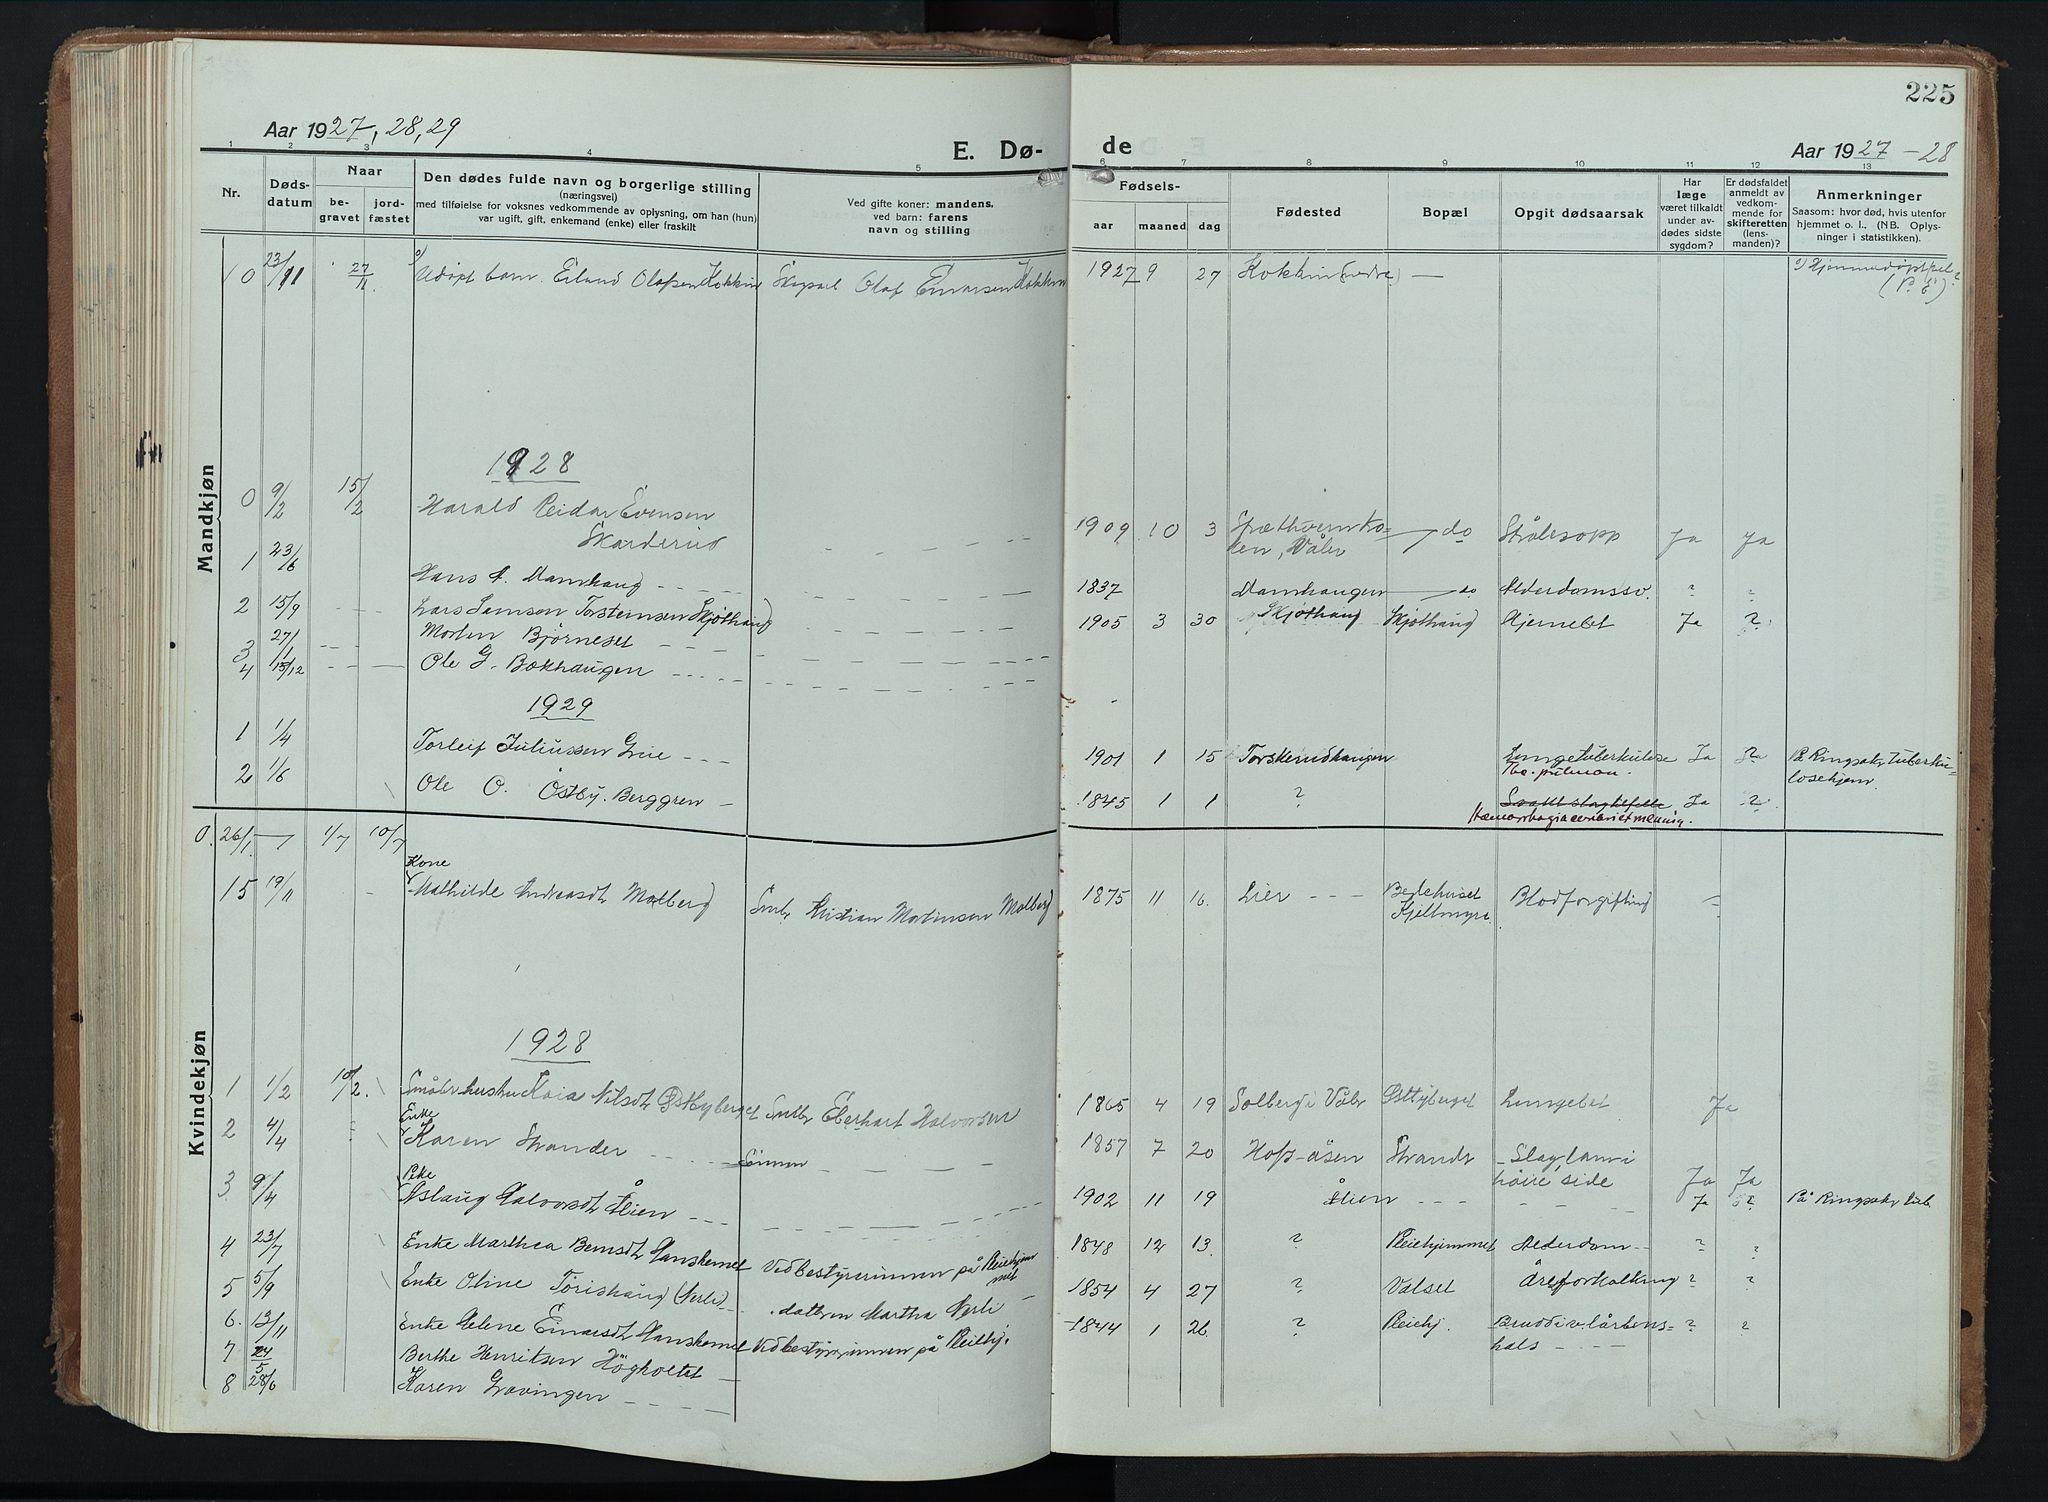 225
Aar 1927, 28, 29
E. Dø-
de
Aar 1927-28
1 2 3 4 5 6 7 8 9 10 11 12 13
Nr.
Døds-
datum
Naar
be-
gravet
jord-
fæstet
Den dødes fulde navn og borgerlige stilling
(næringsvei)
med tilføielse for voksnes vedkommende av oplysning, om han (hun)
var ugift, gift, enkemand (enke) eller fraskilt
Ved gifte koner: mandens.
ved barn: farens
navn og stilling
Fødsels-
aar maaned dag
Fødested
Bopæl
Opgit dødsaarsak
Har
læge
været tilkaldt
under av-
dødes sidste
sygdom?
Er dødsfaldet
anmeldt av
vedkom-
mende for
skifteretten
(lens-
manden)?
Anmerkninger
Saasom: hvor død, hvis utenfor
hjemmet o. l., (NB. Oplys-
ninger i statistikken).
Mandkjøn
10 23/11 27/11 Udøpt barn Eiland Olafsen Kokkin Olaf Einarsen Kokkin 1927 9 27 Kokkin (nedre) —
1928
0 9/2 15/2 Harald Reidar Evensen
Skarderud 1909 10 3 Våler do Strålesopp Ja Ja
1 23/6 Hans A. Damhaug 1837 Damhaugen do Alderdomssv. ? ?
2 15/9 Lars Samson Torsteinsen Skjøthaug 1905 3 30 Skjøthaug Skjøthaug Hjernebet Ja ?
3 27/1 Morten Bjørneset
4 15/12 Ole G. Bakhaugen
1929
1 1/4 Torleif Juliussen Lie 1901 1 15 Torskerudhaugen Lungetuberkulose Ja
Tbc. pulmon.
2 1/6 Ole O. Østby. Berggren 1845 1 1 ? Ja ?
0 26/1 1/7 10/7
Kone
15 19/11 Mathilde Andreasdt Malberg Smbr Kristian Martinsen Malberg 1875 11 16. Lier Bedehuset
Kjeltmyra Blodforgiftning
1928
Kvindekjøn
1 1/2 10/2. Kaia Nilsdt Østbyberget Smbr Eberhart Halvorsen 1865 4 19 Solberg i Våler Østbyberget Lungebet Ja
Enke
2 4/4 Karen Strander Sønnen 1857 7 20 Hof-åsen Strander Slag lam i
høire side Ja Ja
Pike
3 9/4 Aslaug Halvorsdt Ålien 1902 11 19 Ålien Ja ?
4 23/7 Enke Marthea Berntsdt Hanskemel Vedbestyrerinnen på Pleiehjem
met 1848 12 13. ? Pleiehjemmet Alderdom ? ?
5 5/9 Enke Oline Torishaug (Nerli) datteren Martha Nerli 1854 4 27 ? Valset Åreforkalkning ? ?
6. 13/11 Enke Helene Einarsdt Hanskemel Vedbestyrerinnen på Pleiehj. 1844 1 26 ? Pleiehj. Brudd i v. lårbens-
hals ? ?
7 24/5 Berthe Henriksen Högholtet
8 28/6 Karen Gravingen